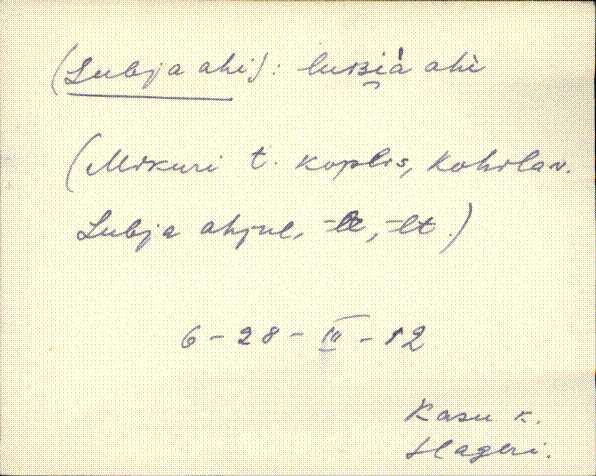 (Lubja ahi): luʙi̯à ahì
(Mikuri t. koplis, Kohilav.
Lubja ahjul, -le, -lt.)
6-28-III-12
Kasu k.
Hageri.